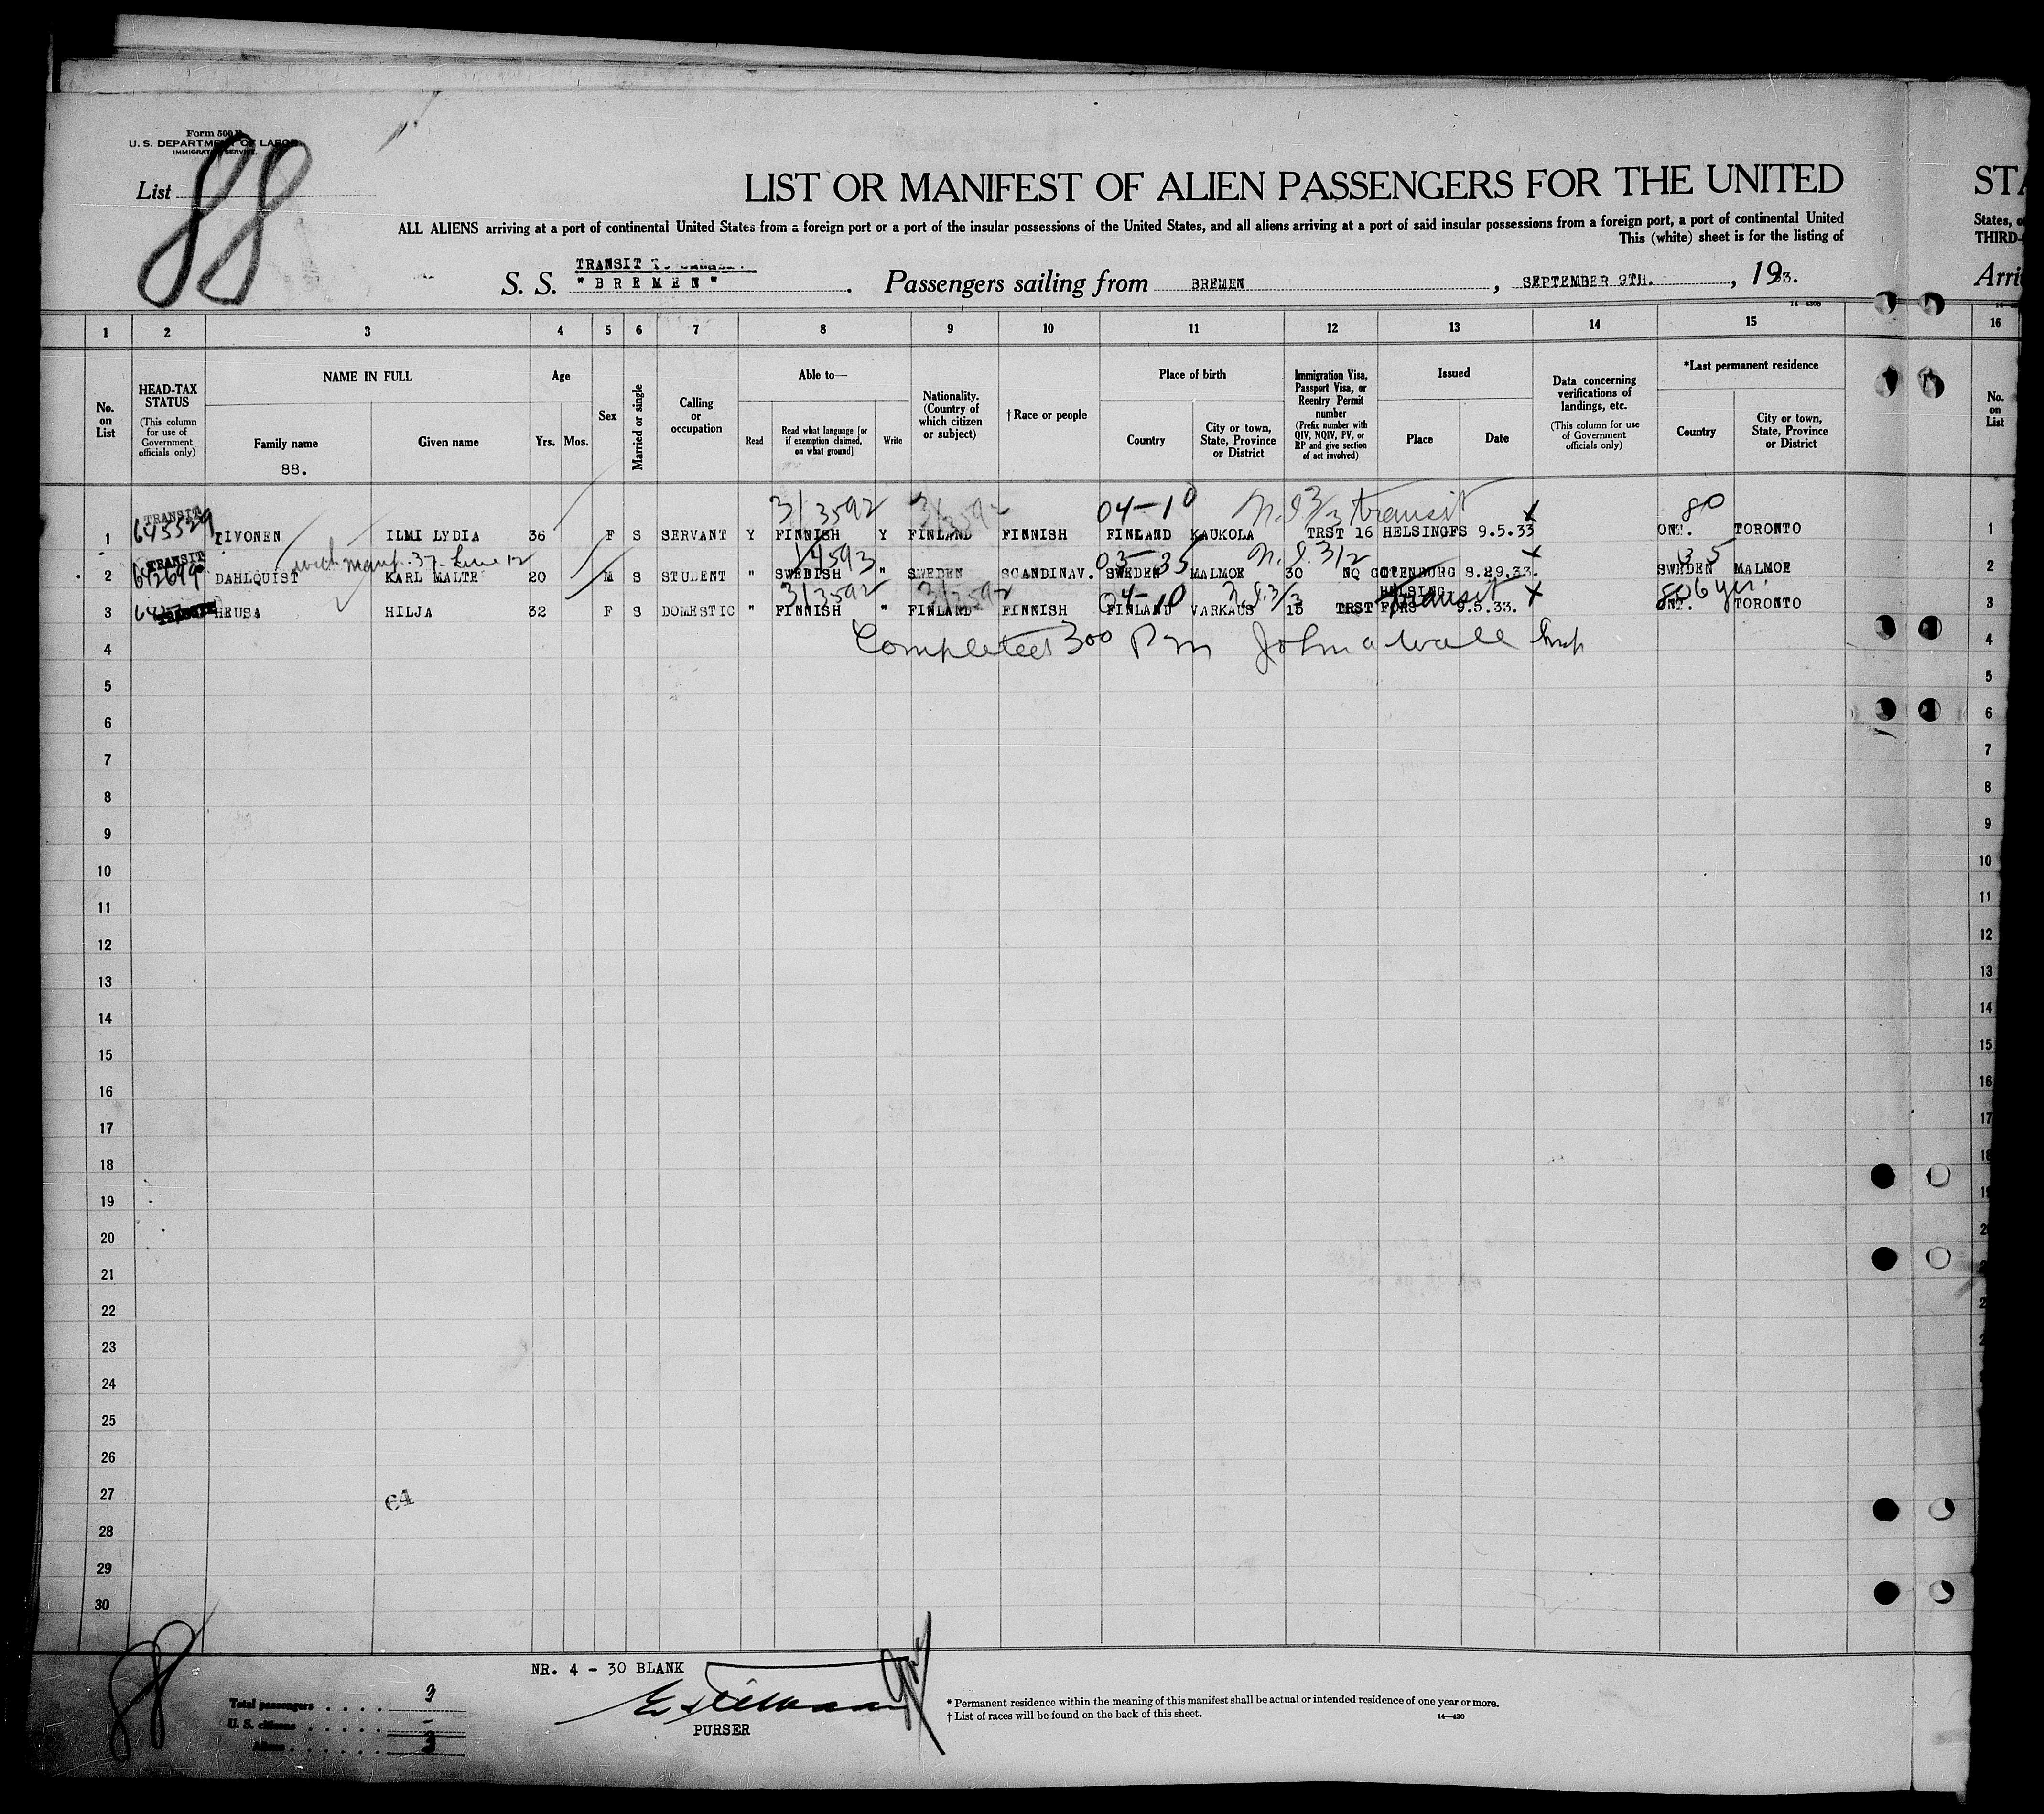 Form 500 B
U. S. DEPARTMENT OF LABOR
IMMIGRATION SERVICE
List 88
LIST OR MANIFEST OF ALIEN PASSENGERS FOR THE UNITED
STA
ALL ALIENS arriving at a port of continental United States from a foreign port or a port of the insular possessions of the United States, and all aliens arriving at a port of said insular possessions from a foreign port, a port of continental United
States, o
This (white) sheet is for the listing of
THIRD-
TRANSIT
S. S. "BREMEN". Passengers sailing from BREMEN, SEPTEMBER 9TH., 1933.
Arri
1 2 3 4 5 6 7 8 9 10 11 12 13 14 15 16
No. on List
HEAD-TAX STATUS (This column for use of Government officials only)
NAME IN FULL Family name Given name
88.
Age Yrs. Mos.
Sex
Married or single
Calling or occupation
Able to— Read Read what language [or if exemption claimed, on what ground] Write
Nationality. (Country of which citizen or subject)
†Race or people
Place of birth Country City or town, State, Province or District
Immigration Visa, Passport Visa, or Reentry Permit number (Prefix number with QIV, NQIV, PV, or RP and give section of act involved)
Issued Place Date
Data concerning verifications of landings, etc. (This column for use of Government officials only)
*Last permanent residence Country City or town, State, Province or District
No. on List
TRANSIT 31/3592 31/3592 04-10 transit X 80
1 645529 IIVONEN ILMI LYDIA 36 F S SERVANT Y FINNISH Y FINLAND FINNISH FINLAND KAUKOLA TRST 16 HELSINGFS 9.5.33 ONT. TORONTO 1
TRANSIT with manf. 37 Line 12 14593 03-35 312 X 35
2 DAHLQUIST KARL MALTE 20 M S STUDENT " SWEDISH " SWEDEN SCANDINAV. SWEDEN MALMOE 30 NQ GOTENBURG 8.29.33. SWEDEN MALMOE 2
31/3592 31/3592 04-10 HELSING transit X 80 6 yrs.
3 TRANSIT HEUSA HILJA 32 F S DOMESTIC " FINNISH " FINLAND FINNISH FINLAND VARKAUS 15 TRST FORS 9.5.33. ONT. TORONTO 3
4 Completed 300 Pm John a Wall Insp 4
5 5
6 6
7 7
8 8
9 9
10 10
11 11
12 12
13 13
14 14
15 15
16 16
17 17
18 18
19 19
20
21
22
23
24
25
26
27 64
28
29
30
88
NR. 4 - 30 BLANK
Total passengers . . . . 3
U. S. citizens . . . . . -
Aliens . . . . . . 3
PURSER
* Permanent residence within the meaning of this manifest shall be actual or intended residence of one year or more.
† List of races will be found on the back of this sheet.
14—430